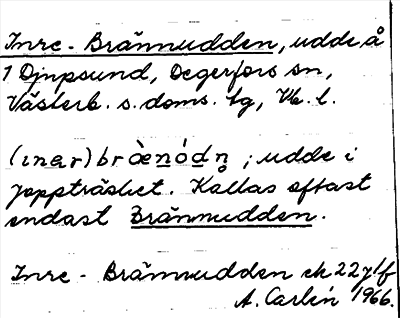 Inre - Brännudden, udde å
1 Djupsund, Degerfors sn,
Västerb. s. doms. tg, Vb. l.
(ınar) bràenódn̥ ; udde i
Joppträsket. Kallas oftast
endast Brännudden.
Inre - Brännudden ek 22
A. Carlén 1966.